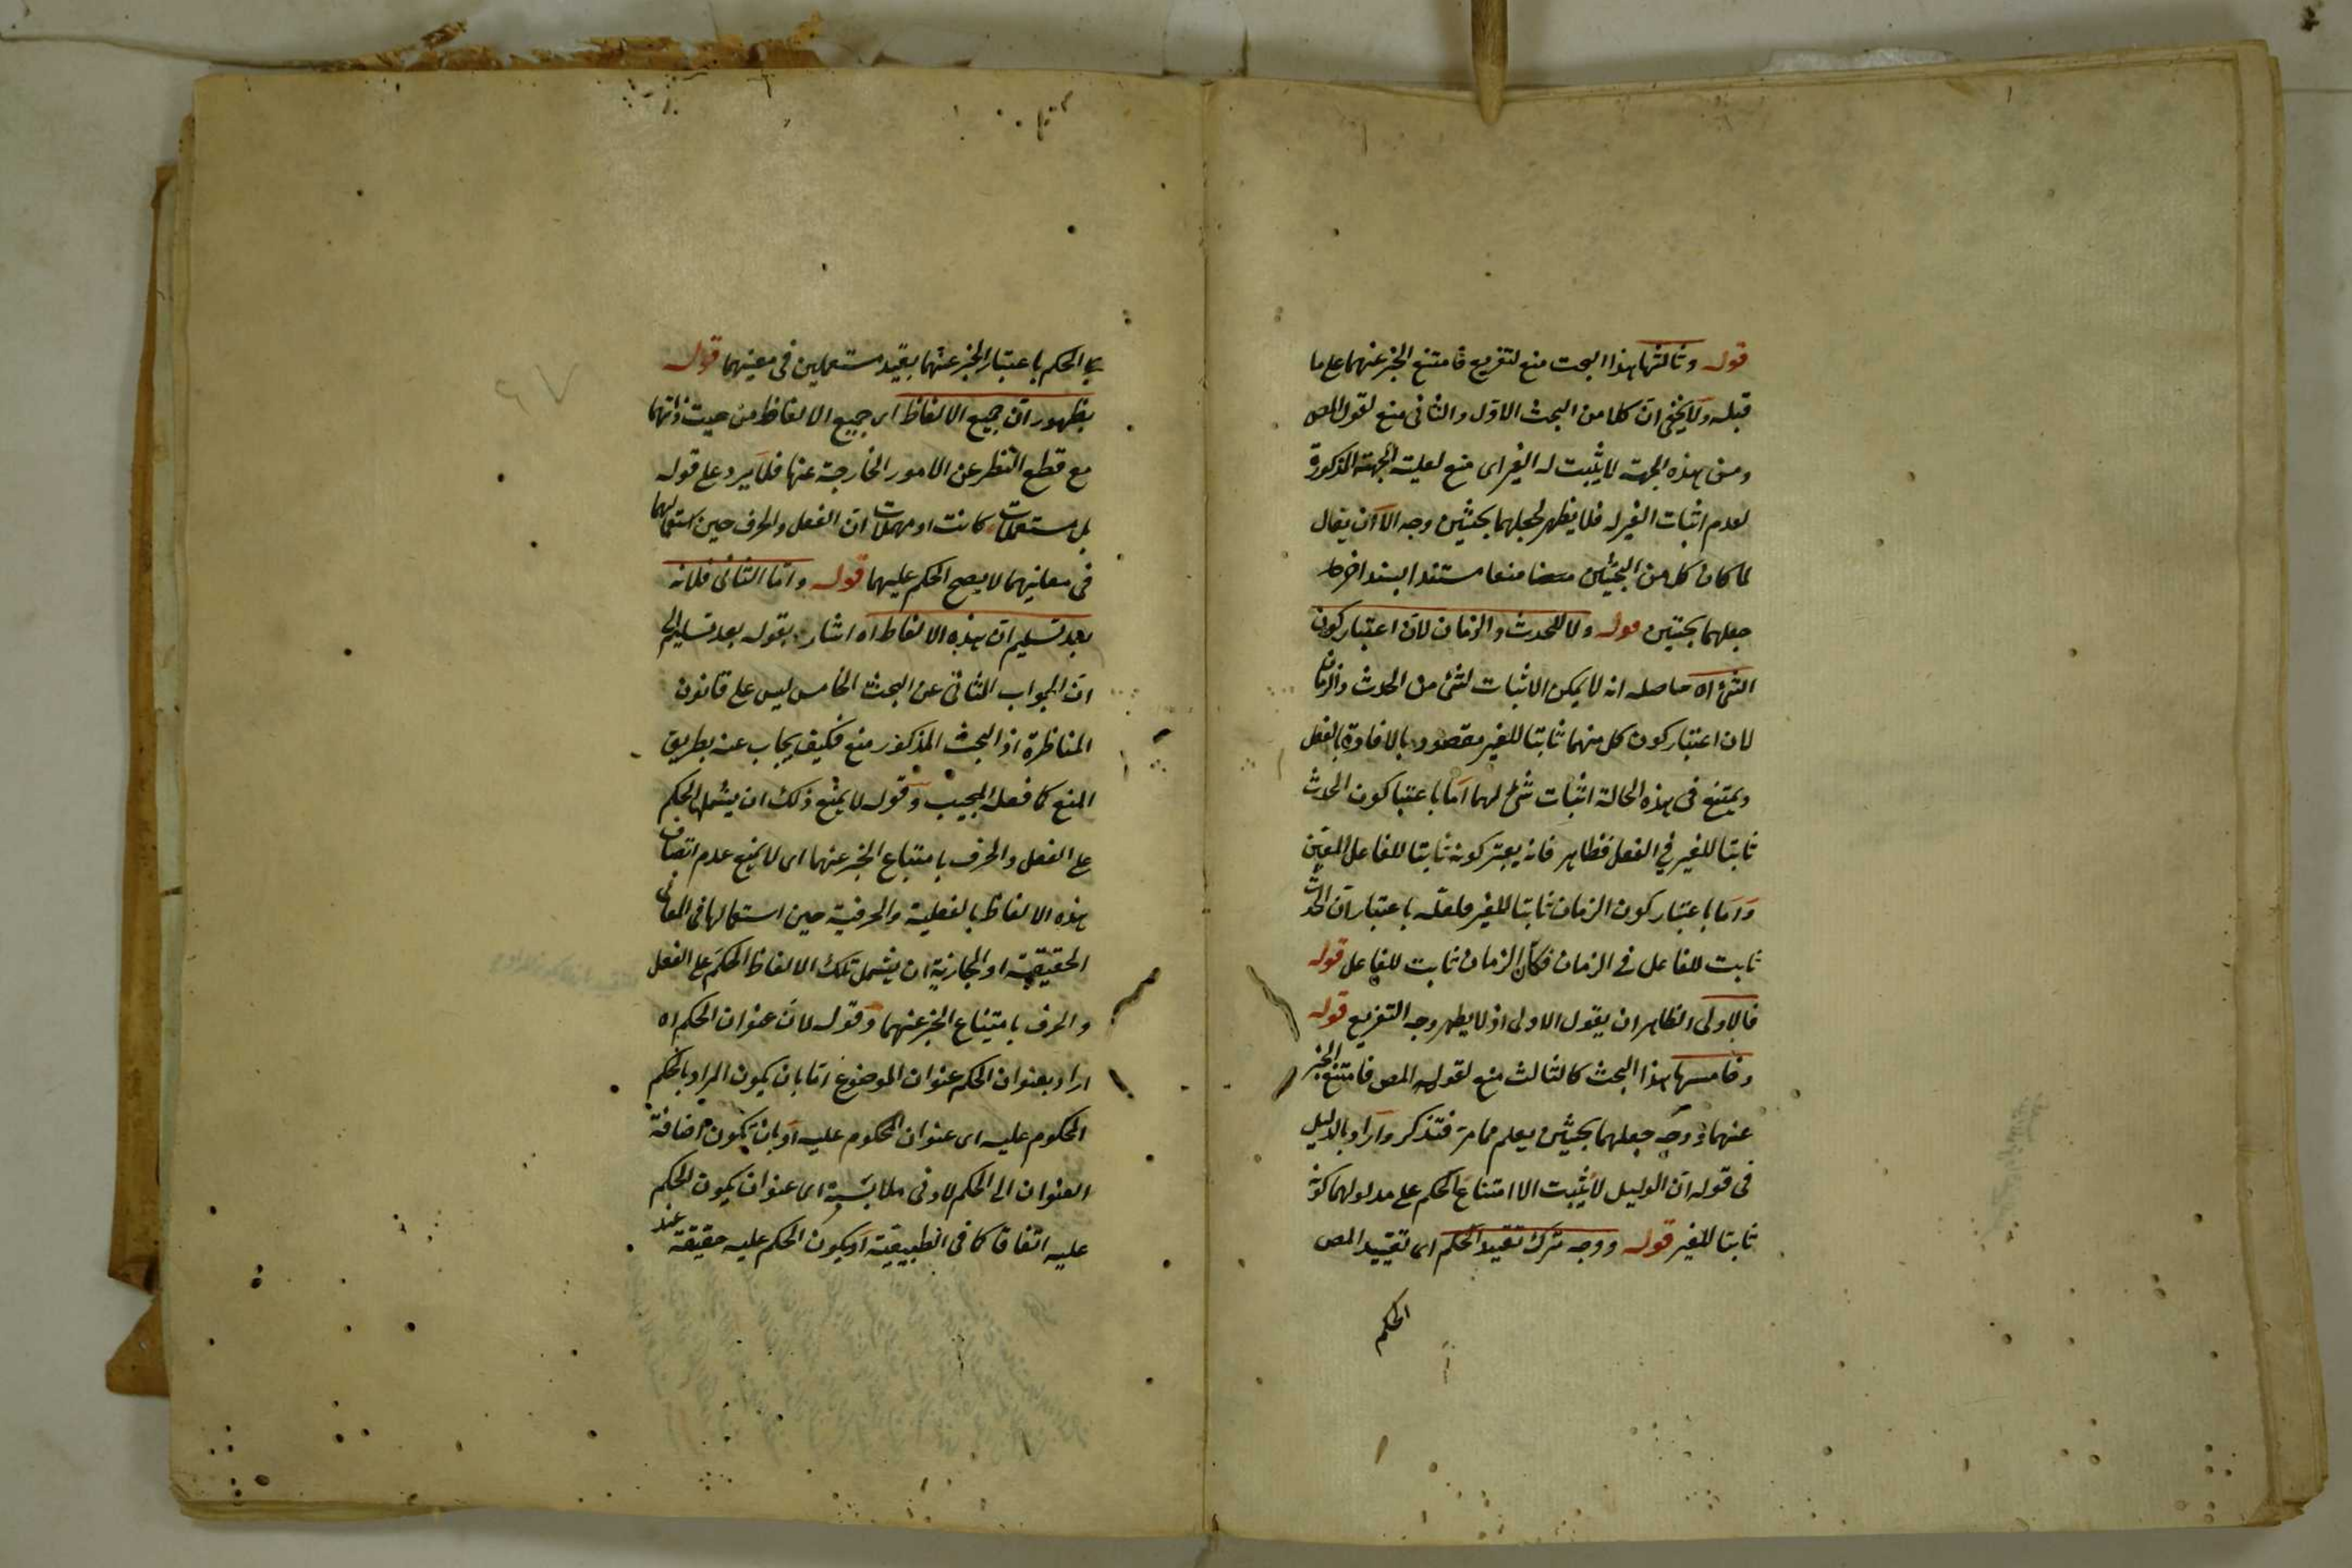 قوله وثالثها هذا البحث منع لتفريع فامتنع الخبر عنهما على ما
قبله ولا يخفى ان كلا من البحث الاول والثانى منع لقول المص
ومن هذه الجهة لا يثبت له الغير اى منع لعلية الجهة المذكورة
لعدم اثبات الغير له فلا يظهر لجعلهما بحثين وجه الا ان يقال
لما كان كل من البحثين منعا مستندا بسند اخر
جعلهما بحثين قوله ولا للحدث والزمان لان اعتبار كون
الشئ اه حاصله انه لا يمكن الاثبات لشئ من الحدث والزمان
لان اعتبار كون كل منهما ثابتا للغير مقصود بالافادة بالفعل
ويمتنع فى هذه الحالة اثبات شئ لهما اما باعتبا كون الحدث
ثابتا للغير فى الفعل فظاهر فانه يعتبر كونه ثابتا للفاعل المعين
واما باعتبار كون الزمان ثابتا للغير فلعله باعتبار ان الحدث
ثابت للفاعل فى الزمان فكأن الزمان ثابت للفاعل قوله
فالاولى الظاهر ان يقول الاولى اذ لا يظهر وجه التفريع قوله
وخامسها هذا البحث كالثالث منع لقوله المص فامتنع الخبر
عنهما ووجه جعلهما بحثين يعلم مما مر فتذكر واراد بالدليل
فى قوله ان الدليل لا يثبت الا امتناع الحكم على مدلولهما كونه
ثابتا للغير قوله ووجه ترك تقييد الحكم اى تقييد المص
الحكم
الحكم باعتبار الخبر عنهما بقيد مستعملين فى معنيهما قوله
بظهور ان جميع الالفاظ اى جميع الالفاظ من حيث ذاتها
مع قطع النظر عن الامور الخارجة عنها فلا يرد على قوله
بل مستعملات كانت او مهملات ان الفعل والحرف حين استعمالهما
فى معانيهما لا يصح الحكم عليهما قوله واما الثانى فلانه
بعد تسليم ان هذه الالفاظ اه اشار بقوله بعد تسليم الى
ان الجواب الثانى عن البحث الخامس ليس على قانون
المناظرة اذ البحث المذكور منع فكيف يجاب عنه بطريق
المنع كما فعله المجيب وقوله لا يمنع ذلك ان يشملها الحكم
على الفعل والحرف بامتناع الخبر عنهما اى لا يمنع عدم اتصاف
هذه الالفاظ بالفعلية والحرفية حين استعمالها فى المعانى
الحقيقية او المجازية ان يشمل تلك الالفاظ الحكم على الفعل
والحرف بامتناع الخبر عنهما وقوله لان عنوان الحكم اه
اراد بعنوان الحكم عنوان الموضوع اما بان يكون المراد بالحكم
المحكوم عليه اى عنوان المحكوم عليه او بان يكون اضافة
العنوان الى الحكم لادنى ملابسة اى عنوان يكون الحكم
عليه اتفاقا كما فى الطبيعية او يكون الحكم عليه حقيقة عند